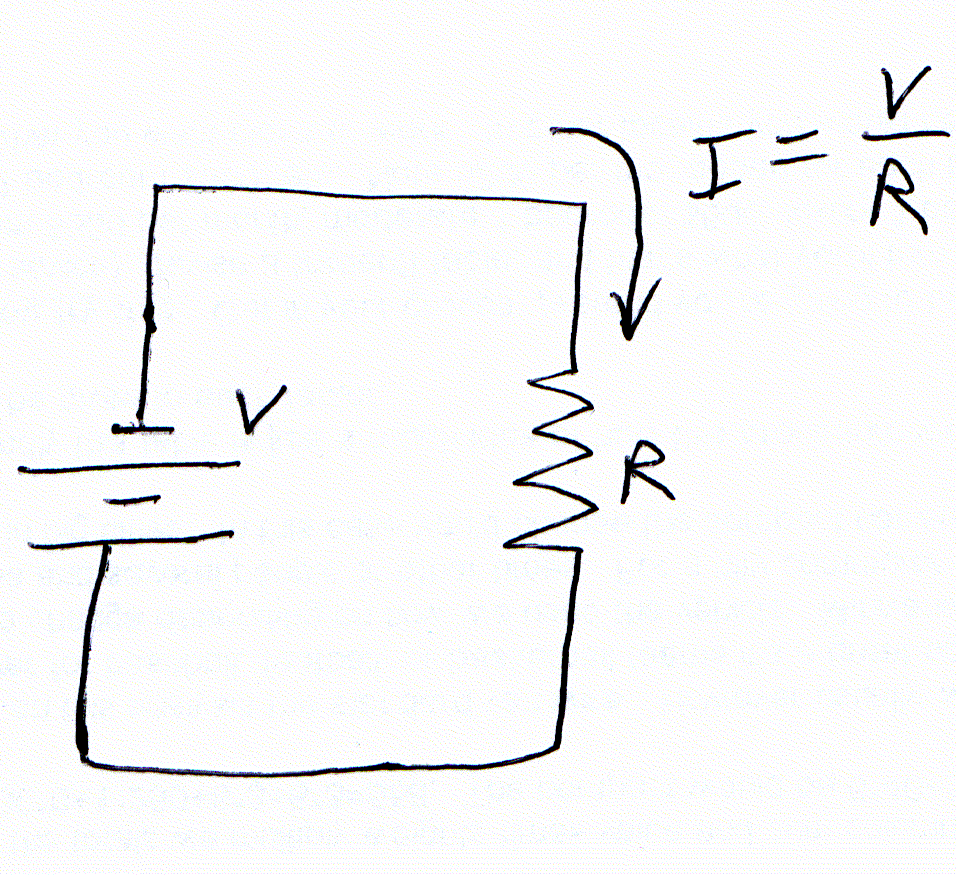 I = V/R
V
R